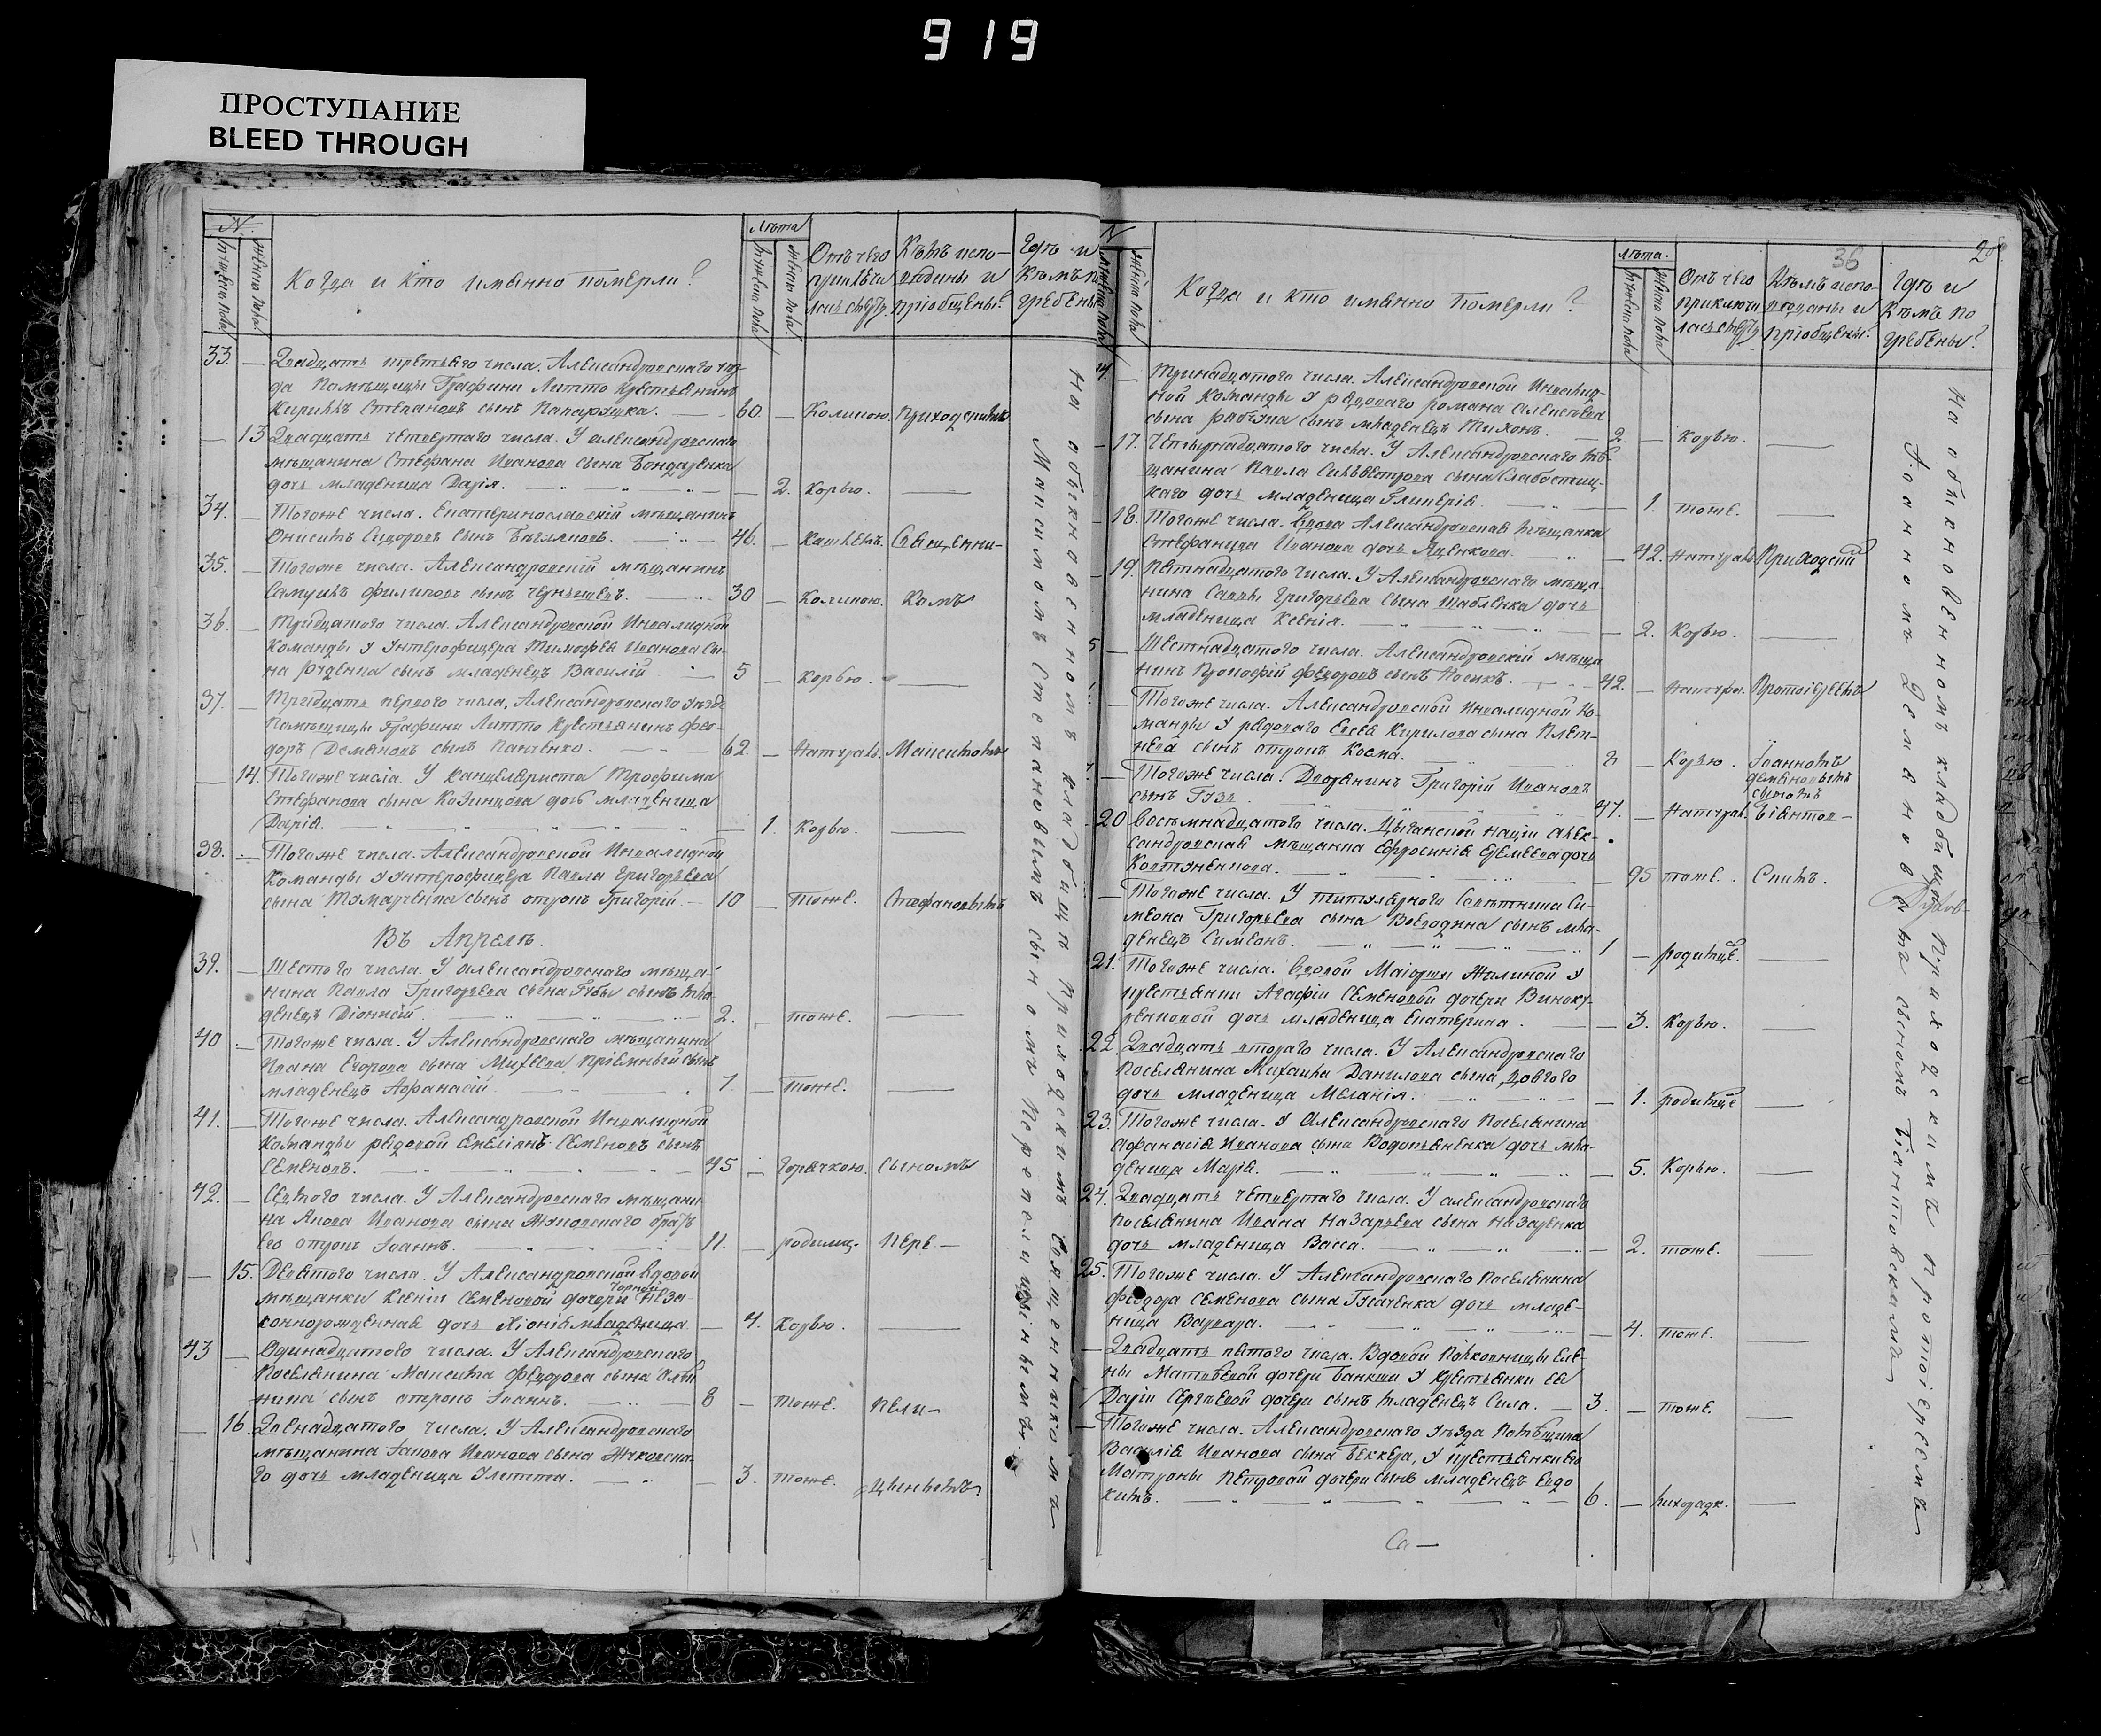 919
ПРОСТУПАНИЕ
BLEED THROUGH
N.
Мужеска пола
Женска пола
Когда и кто именно померли?
Лѣта
Мужеска пола
Женска пола
Отъ чего
приключи
лась смерть.
Кѣмъ испо-
вѣданы и
пріобщены?
Гдѣ и
Кѣмъ по
гребены
33. — Двадцать третьяго числа. Александровскаго уѣз-
да Помѣщицы Графини Литто Крестьянинъ
Кириллъ Степановъ сынъ Папарука. — 60. — Колikою. Приходскимъ
— 13 Двадцать четвертаго числа. У Александровскаго
мѣщанина Стефана Иванова сына Бондаренка
дочь младеница Дарія. — 2. Корью. —
34. — Тогоже числа. Екатеринославскій мѣщанинъ
Онисимъ Сидоровъ сынъ — 46. — Кашлемъ. Священни-
35. — Тогоже числа. Александровскій мѣщанинъ
Самуилъ Филиповъ сынъ — 30 — Коликою. Комъ
36. — Тридцатого числа. Александровской Инвалидной
Команды у Унтерофицера Тимофея Иванова сы-
на сынъ младенецъ Василій — 5 — Корью. —
37. — Тридцать перваго числа, Александровскаго уѣзда
Помѣщицы Графини Литто Крестьянинъ Фео-
доръ Демяновъ сынъ Панченко. — 62. — Натурал. Максимомъ
— 14. Тогоже числа. У Канцеляриста Трофима
Стефанова сына Казинцова дочь младеница
Дарія. — 1. Корью. —
38. — Тогоже числа. Александровской Инвалидной
Команды у Унтерофицера Павла Григорьева
сына сынъ отрокъ Григорій. — 10 — Тоже. Стефановымъ
Въ Апрелѣ.
39. — Шестого числа. У Александровскаго мѣща-
нина Павла Григорьева сына Губы сынъ мла-
денецъ Діонисій. — 2. — тоже. —
40 — Тогоже числа. У Александровскаго мѣщанина
Ивана Егорова сына Михеева пріемный сынъ
младенецъ Афанасій — 7. — Тоже. —
41. — Тогоже числа. Александровской Инвалидной
Команды рядовой Емеліянъ Семеновъ сынъ
Семеновъ. — 45 — Горячкою. Сыномъ
42. — Седмого числа. У Александровскаго мѣщани
на Якова Иванова сына Жуковскаго братъ
его отрокъ Іоаннъ. — 11. — родимц. Пере-
— 15. Девятого числа. У Александровской вдовой
мѣщанки Ксеніи Семеновой дочери Чорной неза-
коннорожденная дочь Хіонія младеница — 4. Корью. —
43 — Одинадцатого числа. У Александровскаго
Поселянина Максима Федорова сына
сынъ отрокъ Іоаннъ. — 8 — Тоже. пели-
— 16. Двенадцатого числа. У Александровскаго
мѣщанина Іакова Иванова сына Жуковска-
го дочь младеница Улитта. — 3. тоже. цынымъ
На обыкновенномъ кладбищѣ приходскимъ Священникомъ
Максимомъ Степановымъ сыномъ Перепелицынымъ.
N
Мужеска пола
Женска пола
Когда и кто именно померли?
Лѣта.
Мужеска пола
Женска пола
Отъ чего
приключи
лась смерть
Кѣмъ испо-
вѣданы и
пріобщены?
Гдѣ и
Кѣмъ по
гребены?
36
20
— Тринадцатого числа. Александровской Инвалид-
ной Команды у рядоваго Романа Алексѣева
сына сынъ младенецъ Тихонъ. — 2. — Корью. —
— 17. Четырнадцатого числа. У Александровскаго мѣ-
щанина Павла Сильвестрова сына Слабостиц-
каго дочь младеница Гликерія. — 1. тоже. —
— 18. Тогоже числа. Вдова Александровская мѣщанка
Стефанида Иванова дочь Яценкова. — 42. Натурал Приходскій
— 19. Пятнадцатого числа. У Александровскаго мѣща-
нина Саввы Григорьева сына Шабленка дочь
младеница Ксенія. — 2. Корью. —
— Шестнадцатого числа. Александровскій мѣща
нинъ Прокофій Федоровъ сынъ Носикъ. — 42. — Натурал. Протоіереемъ
— Тогоже числа. Александровской Инвалидной Ко-
манды у рядоваго Евсея Кирилова сына Плет-
нева сынъ отрокъ Косма. — Корью. Іоанномъ
демяновымъ
сыномъ
— Тогоже числа. Дворянинъ Григорій Ивановъ
сынъ Гузь. — 47. — Натурал. Біянтов-
20 Восемнадцатого числа. Цыганской націи Алек-
сандровская мѣщанка Ефросинія Еремеева дочь
— 95 тоже. Скимъ.
— Тогоже числа. У титулярного Советника Си-
меона Григорьева сына Воеводина сынъ мла-
денецъ Симеонъ. — 1 — родимце. —
21. Тогоже числа. Вдовой Маіорши Жилиной у
крестьянки Агафіи Семеновой дочери Виноку-
ренковой дочь младеница Екатерина. — 3. Корью. —
22. Двадцать втораго числа. У Александровскаго
поселянина Михаила Данилова сына Довгого
дочь младеница Меланія. — 1. родимце —
23. Тогоже числа. У Александровскаго Поселянина
Афанасія Иванова сына Водопьяненка дочь мла-
деница Марія. — 5. Корью. —
24. Двадцать четвертаго числа. У Александровскаго
Поселянина Ивана Назарьева сына Назаренка
дочь младеница Васса. — 2. тоже. —
25. Тогоже числа. У Александровскаго Поселянина
Феодора Семенова сына Гусаченка дочь младе-
ница Варвара. — 4. тоже. —
— Двадцать пятого числа. Вдовой Полковницы Еле-
ны Матвѣевой дочери у Крестьянки ея
Даріи Сергѣевой дочери сынъ младенецъ Сила. — 3. — тоже. —
— Тогоже числа. Александровскаго уѣзда помѣщика
Василія Иванова сына Беккера, у крестьянки его
Матроны Петровой дочери сынъ младенецъ Евдо
кимъ. — 6. — лихорадк. —
На обыкновенномъ кладбищѣ приходскимъ протоіереемъ
Іоанномъ Демяновымъ сыномъ Біянтовскимъ
Са—